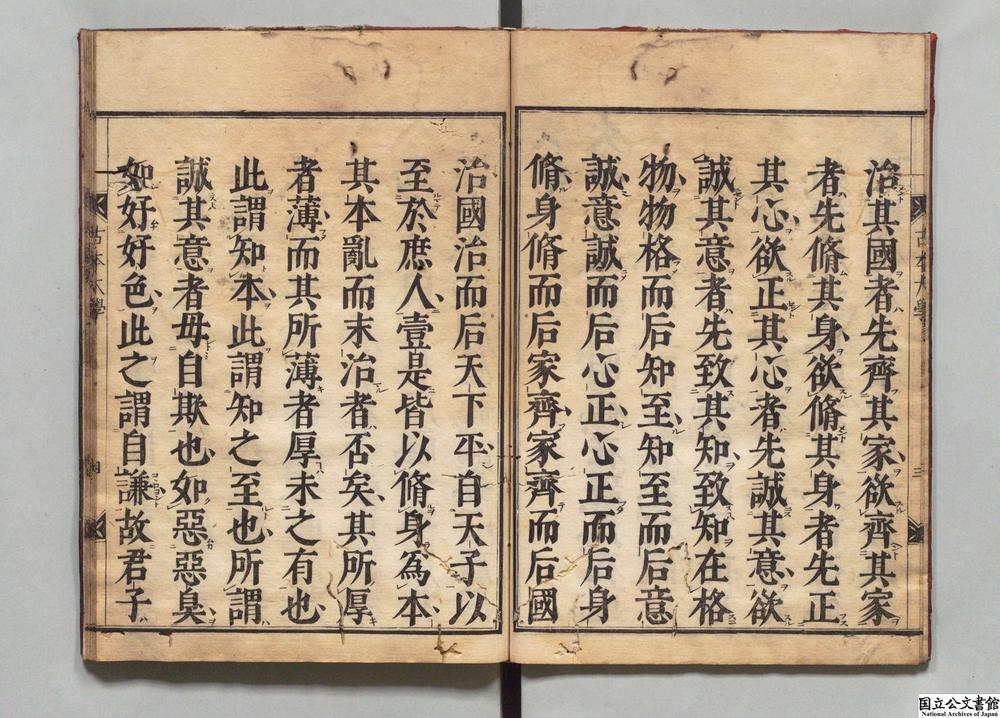 治其國者先齊其家欲齊其家
者先脩其身欲脩其身者先正
其心欲正其心者先誠其意欲
誠其意者先致其知致知在格
物物格而后知至知至而后意
誠意誠而后心正心正而后身
脩身脩而后家齊家齊而后國
治國治而后天下平自天子以
至於庶人壹是皆以脩身為本
其本亂而末治者否矣其所厚
者薄而其所薄者厚未之有也
此謂知本此謂知之至也所謂
誠其意者毋自欺也如惡惡臭
如好好色此之謂自謙故君子
古本大學
三
古本大學
国立公文書館
National Archives of Japan